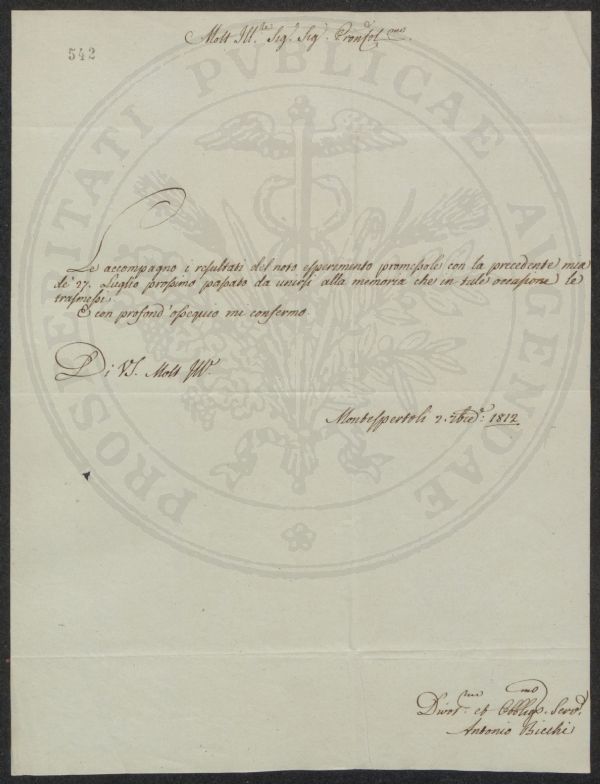 542
Molt Ill.re Sig.r Sig.r Pron Col.mo
Le accompagno i resultati del noto esperimento promessole con la precedente mia
de' 27. Luglio prossimo passato da unirsi alla memoria che in tale occasione le
trasmessi
E con profond'ossequio mi confermo.
Di VS. Molt Ill.e
Montespertoli 2. 1812.
Divot.mo et Obblig.mo Serv.e
Antonio Bicchi
PROSPERITATI PVBLICAE AVGENDAE